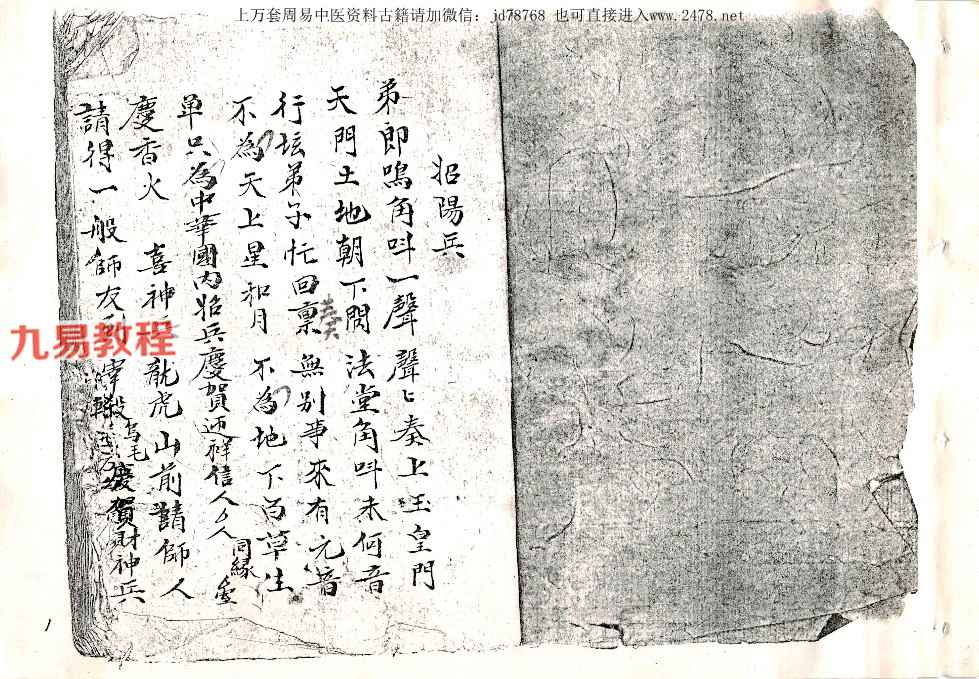 上万套周易中医资料古籍请加微信：jd78768 也可直接进入www.2478.net
招陽兵
弟郎鳴角叫一聲 聲〻奏上玉皇門
天門土地朝下問 法堂角叫未何音
行坛弟子忙回稟奏 無别事來有元音
不為天上星和月 不為地下百草生
单只為中華國内招兵慶賀 信人人同緣
慶香火 喜神 龍虎山前請師人
請得一般師友 宰殺 毛 慶賀財神兵
九易教程
1